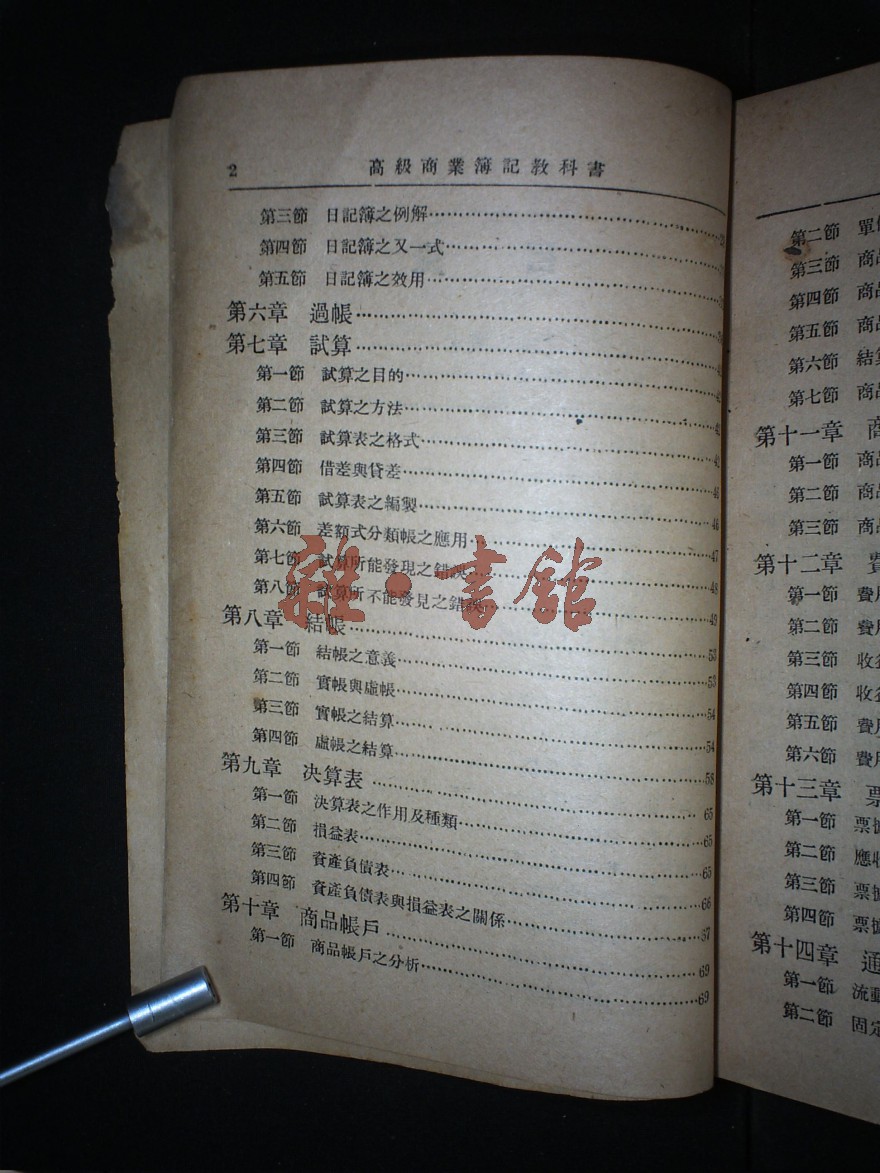 2 高級商業簿記教科書
第三節 日記簿之例解
第四節 日記簿之又一式
第五節 日記簿之效用
第六章 過帳
第七章 試算
第一節 試算之目的
第二節 試算之方法
第三節 試算表之格式
第四節 借差與貸差
第五節 試算表之編製……46
第六節 差額式分類帳之應用……47
第七節 試算所能發現之錯誤……48
第八節 試算所不能發見之錯誤……49
第八章 結帳……53
第一節 結帳之意義……53
第二節 實帳與虛帳……54
第三節 實帳之結算……54
第四節 虛帳之結算……58
第九章 決算表……65
第一節 決算表之作用及種類……65
第二節 損益表……65
第三節 資產負債表……66
第四節 資產負債表與損益表之關係
第十章 商品帳戶……69
第一節 商品帳戶之分析……69
雜·書館
第二節 單
第三節 商品
第四節 商品
第五節 商品
第六節 結算
第七節 商品
第十一章 商
第一節 商品
第二節 商品
第三節 商品
第十二章 費
第一節 費用
第二節 費用
第三節 收益
第四節 收益
第五節 費用
第六節 費用
第十三章 票
第一節 票據
第二節 應收
第三節 票據
第四節 票據
第十四章 通
第一節 流動
第二節 固定